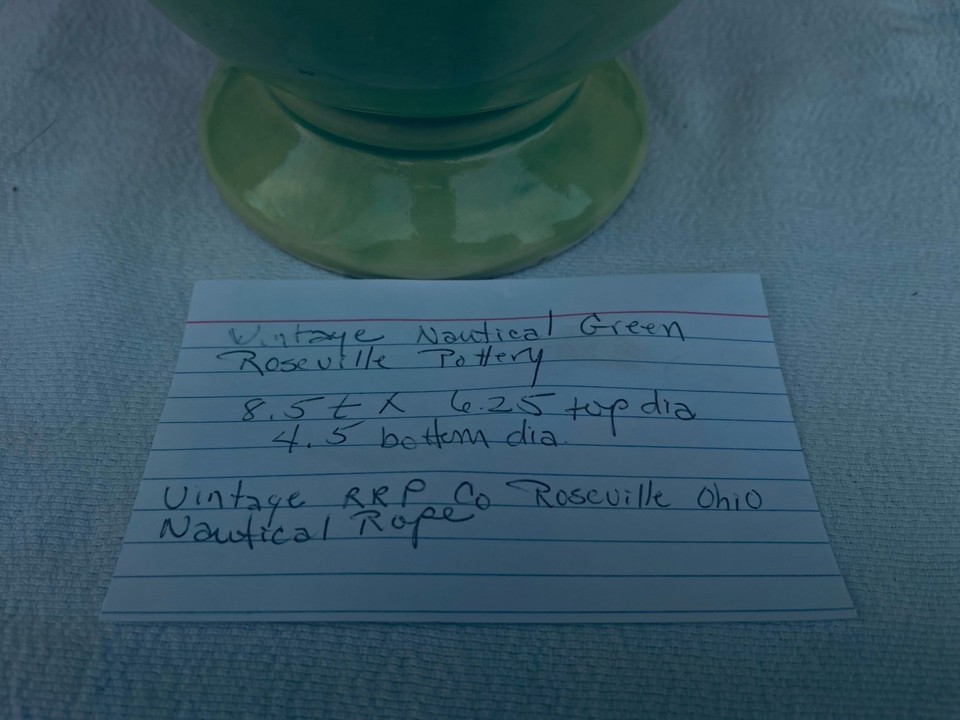 Vintage Nautical Green
Roseville Pottery
8.5 t x 6.25 top dia
4.5 bottom dia.
Vintage RRP Co Roseville Ohio
Nautical Rope